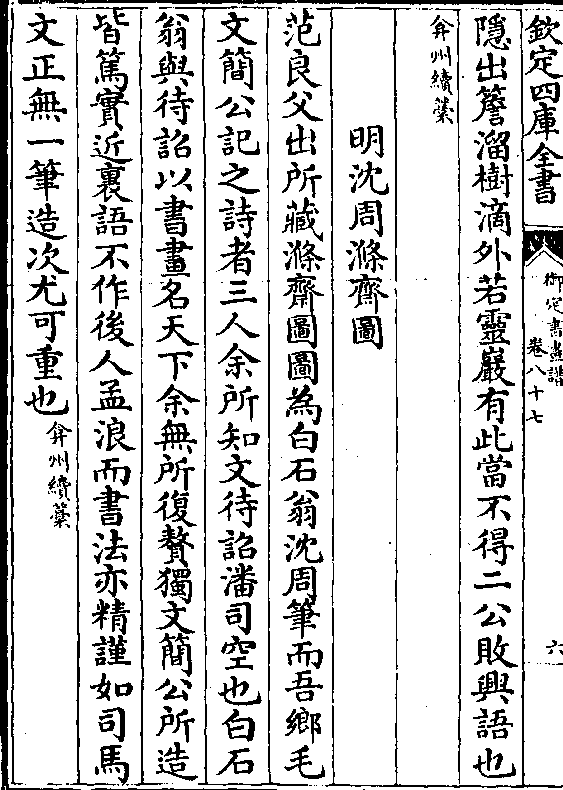 欽定四庫全書
御定書畫譜
卷八十七
六
隱出簷溜樹滴外若靈巖有此當不得二公敗興語也
弇州續藁
明沈周滌齋圖
范良父出所藏滌齋圖圖為白石翁沈周筆而吾鄉毛
文簡公記之詩者三人余所知文待詔潘司空也白石
翁與待詔以書畫名天下余無所復贅獨文簡公所造
皆篤實近裏語不作後人孟浪而書法亦精謹如司馬
文正無一筆造次尤可重也弇州續藁